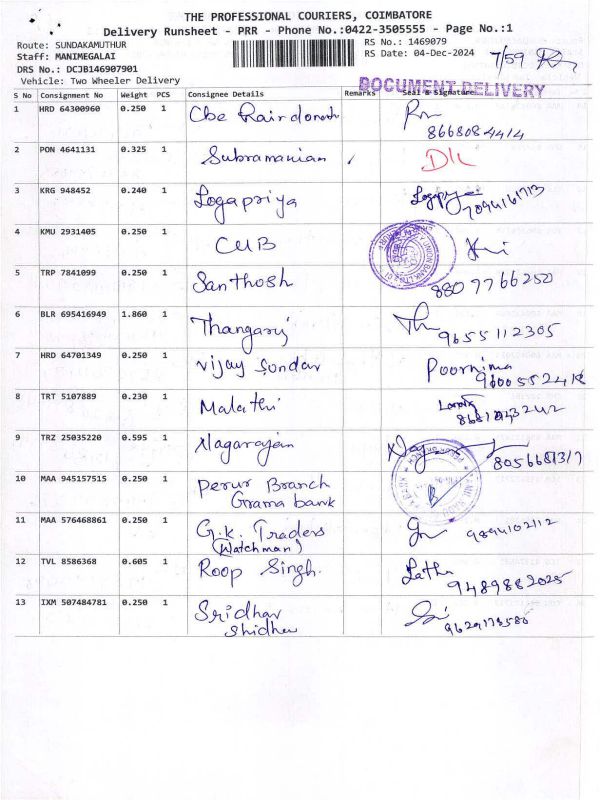 THE PROFESSIONAL COURIERS, COIMBATORE
Delivery Runsheet - PRR - Phone No.:0422-3505555 - Page No.:1
Route: SUNDAKAMUTHUR
Staff: MANIMEGALAI
DRS No.: DCJB146907901
Vehicle: Two Wheeler Delivery
RS No.: 1469079
RS Date: 04-Dec-2024
7/59
DOCUMENT DELIVERY
S No Consignment No Weight PCS Consignee Details Remarks Seal & Signature
1 HRD 64300960 0.250 1 Cbe
8668084414
2 PON 4641131 0.325 1 Subramanian
3 KRG 948452 0.240 1 Logapriya
7094161713
4 KMU 2931405 0.250 1 CUB
5 TRP 7841099 0.250 1 Santhosh
8807766250
6 BLR 695416949 1.860 1 Thangaraj
9655112305
7 HRD 64701349 0.250 1 Vijay Sundar Poornima
8 TRT 5107889 0.230 1 Malathi
9 TRZ 25035220 0.595 1 Nagarajan
10 MAA 945157515 0.250 1 Perur Branch
Grama bank
11 MAA 576468861 0.250 1 G.k. Traders
9894102112
(Watchman)
12 TVL 8586368 0.605 1 Roop Singh. Latha
9489882025
13 IXM 507484781 0.250 1 Sridhar